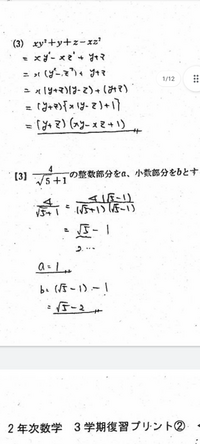 (3) xy²+y+z-xz²
= xy²-xz²+y+z
= x(y²-z²)+y+z
= x(y+z)(y-z)+(y+z)
= (y+z){x(y-z)+1}
= (y+z)(xy-xz+1)
1/12
【3】 4/(√5+1) の整数部分をa、小数部分をbとす
4/(√5+1) = 4(√5-1)/(√5+1)(√5-1)
= √5-1
2...
a=1
b=(√5-1)-1
= √5-2
2年次数学 3学期復習プリント②